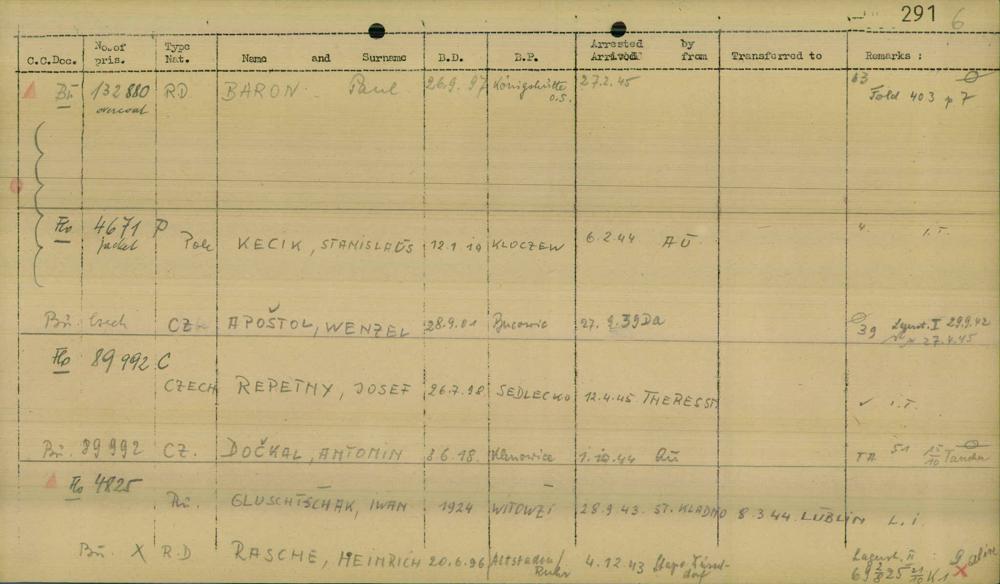 291 6
C.C.Doc. No.of pris. Type Nat. Name and Surname B.D. B.P. Arrested by Arrived from Transferred to Remarks :
Bu 132 880 RD BARON Paul 26.9.97 Königshütte 27.2.45
overcoat O.S. Fold 403 p 7
Flo 4671 P
jacket Pole KECIK, STANISLAUS 12.1.19 KLOCZEW 6.2.44 AU I.T.
Bu. Czech CZ APOŠTOL, WENZEL 28.9.01 Bucovic 27.9.39 Da 39 Lagerst. I 29.9.42
27.4.45
Flo 89 992 C
CZECH REPETNY, JOSEF 26.7.18 SEDLECKO 12.4.45 THERESST I.T.
Bu. 89 992 CZ. DOČKAL, ANTONIN 8 6.18. 1.10.44 Au 51
Flo 4825
Ru. GLUSCHTSCHAK, IWAN 1924 WITOWZI 28.9 43. ST. KLADNO 8.3 44 LUBLIN L.i.
Bu. X R.D RASCHE, HEINRICH 20.6.96 Altstaden/ 4.12.43 Stapo Düssel-
Ruhr dorf Lagerst. II